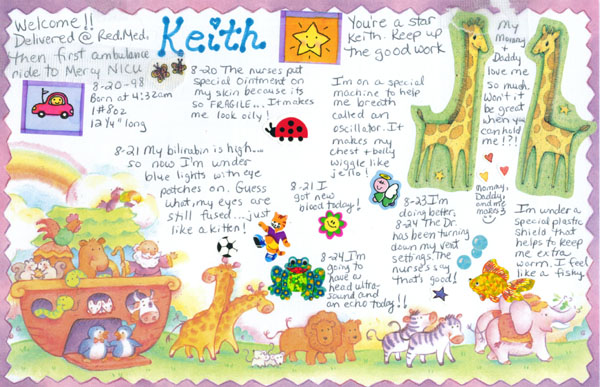 Welcome!!
Delivered @ Red.Med.
then first ambulance
ride to Mercy NICU
Keith
You're a star
Keith. Keep up
the good work
My
Mommy
+
Daddy
love me
so much.
Won't it
be great
when you
can hold
me!?!
8-20-98
Born at 4:32am
1# 8oz
12 1/4" long
8-20 The nurses put
special ointment on
my skin because its
so FRAGILE... It makes
me look oily!
I'm on a special
machine to help
me breath
called an
oscillator. It
makes my
chest + belly
wiggle like
jello!
8-21 My bilirubin is high...
so now I'm under
blue lights with eye
patches on. Guess
what, my eyes are
still fused... just
like a kitten!
8-21 I
got new
blood today!
8-23 I'm
doing better.
8-24 The Dr.
has been turning
down my vent
settings. The
nurse's say
that's good!
Mommy,
Daddy,
and me
makes 3
I'm under a
special plastic
shield that
helps to keep
me extra
warm. I feel
like a fishy.
8-24 I'm
going to
have a
head ultra-
sound and
an echo today!!